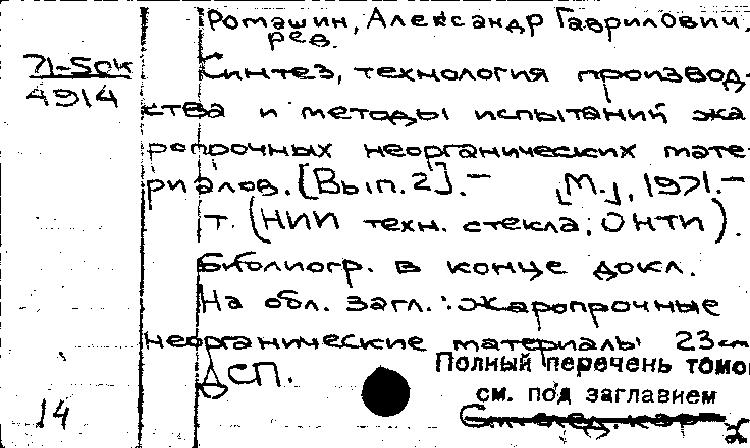 Ромашин, Александр Гаврилович,
рев.
71-5ок
4914
Синтез, технология производ-
ства и методы испытаний жа
ропрочных неорганических мате-
риалов. [Вып. 2]. — [М.], 1971. —
т. (НИИ техн. стекла; ОНТИ).
Библиогр. в конце докл.
На обл. загл.: Жаропрочные
неорганические материалы 23см
ДСП.
Полный перечень томов
см. под заглавием
14